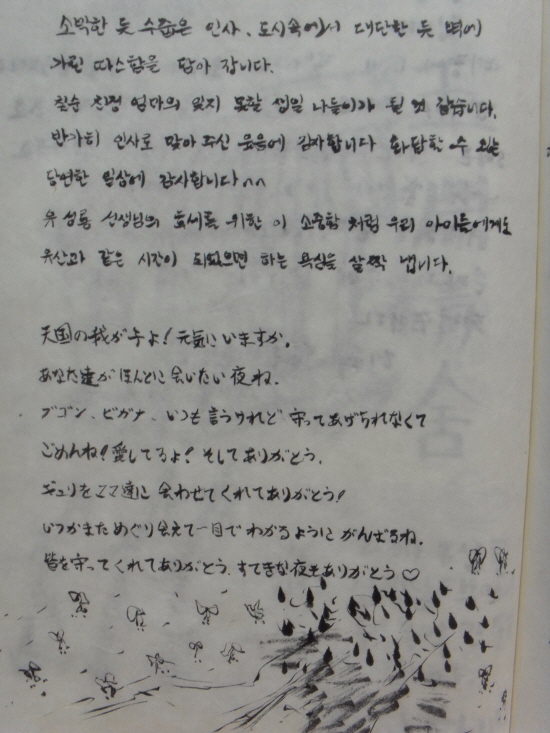 소박한 듯 수줍은 인사. 도시속에서 대단한 듯 벽에
가린 따스함을 담아 갑니다.
칠순 친정 엄마의 잊지 못할 생일 나들이가 될 것 같습니다.
반가히 인사로 맞아주신 웃음에 감사합니다 화답할 수 있는
당연한 일상에 감사합니다^^
유성룡 선생님의 후세를 위한 이 소중함 처럼 우리 아이들에게도
유산과 같은 시간이 되었으면 하는 욕심을 살짝 냅니다.
天国の我が子よ！元気にいますか。
あなた達がほんとに会いたい夜ね。
ブゴン、ビガナ、いつも言うけれど 守ってあげられなくて
ごめんね！愛してるよ！そしてありがとう。
ギュリをママ達に会わせてくれてありがとう！
いつかまためぐり会えて一目でわかるようにがんばるね。
皆を守ってくれてありがとう。すてきな夜をありがとう♡